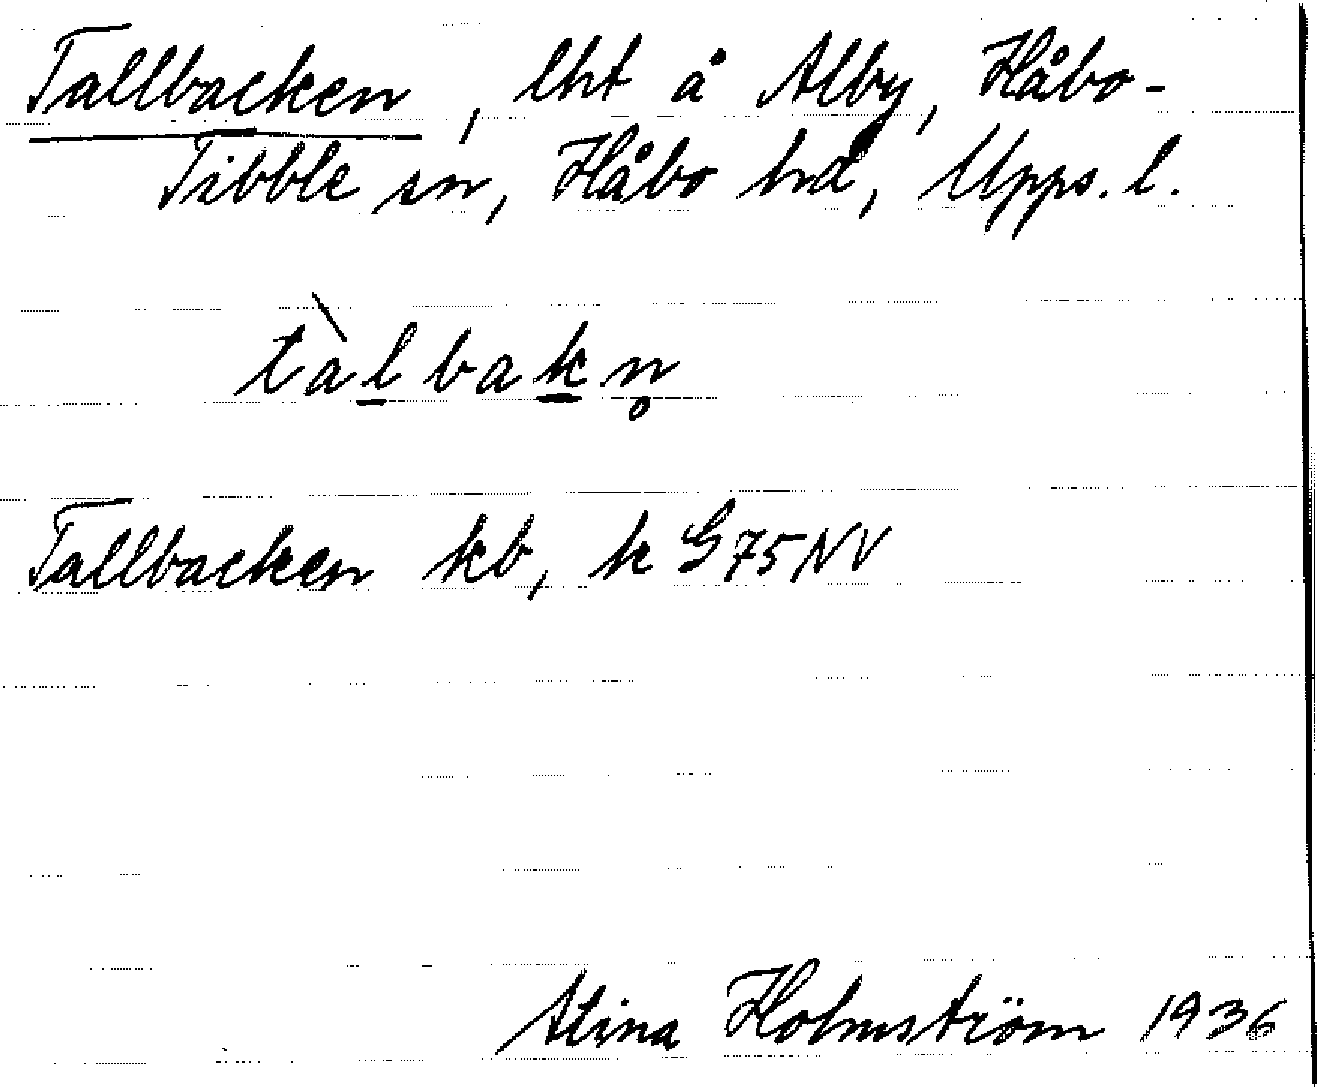 Tallbacken, lht å Alby, Håbo-
Tibble sn, Håbo hd, Upps. l.
tàl̠bak̠n̥
Tallbacken kb, k G75NV
Alina Holmström 1936